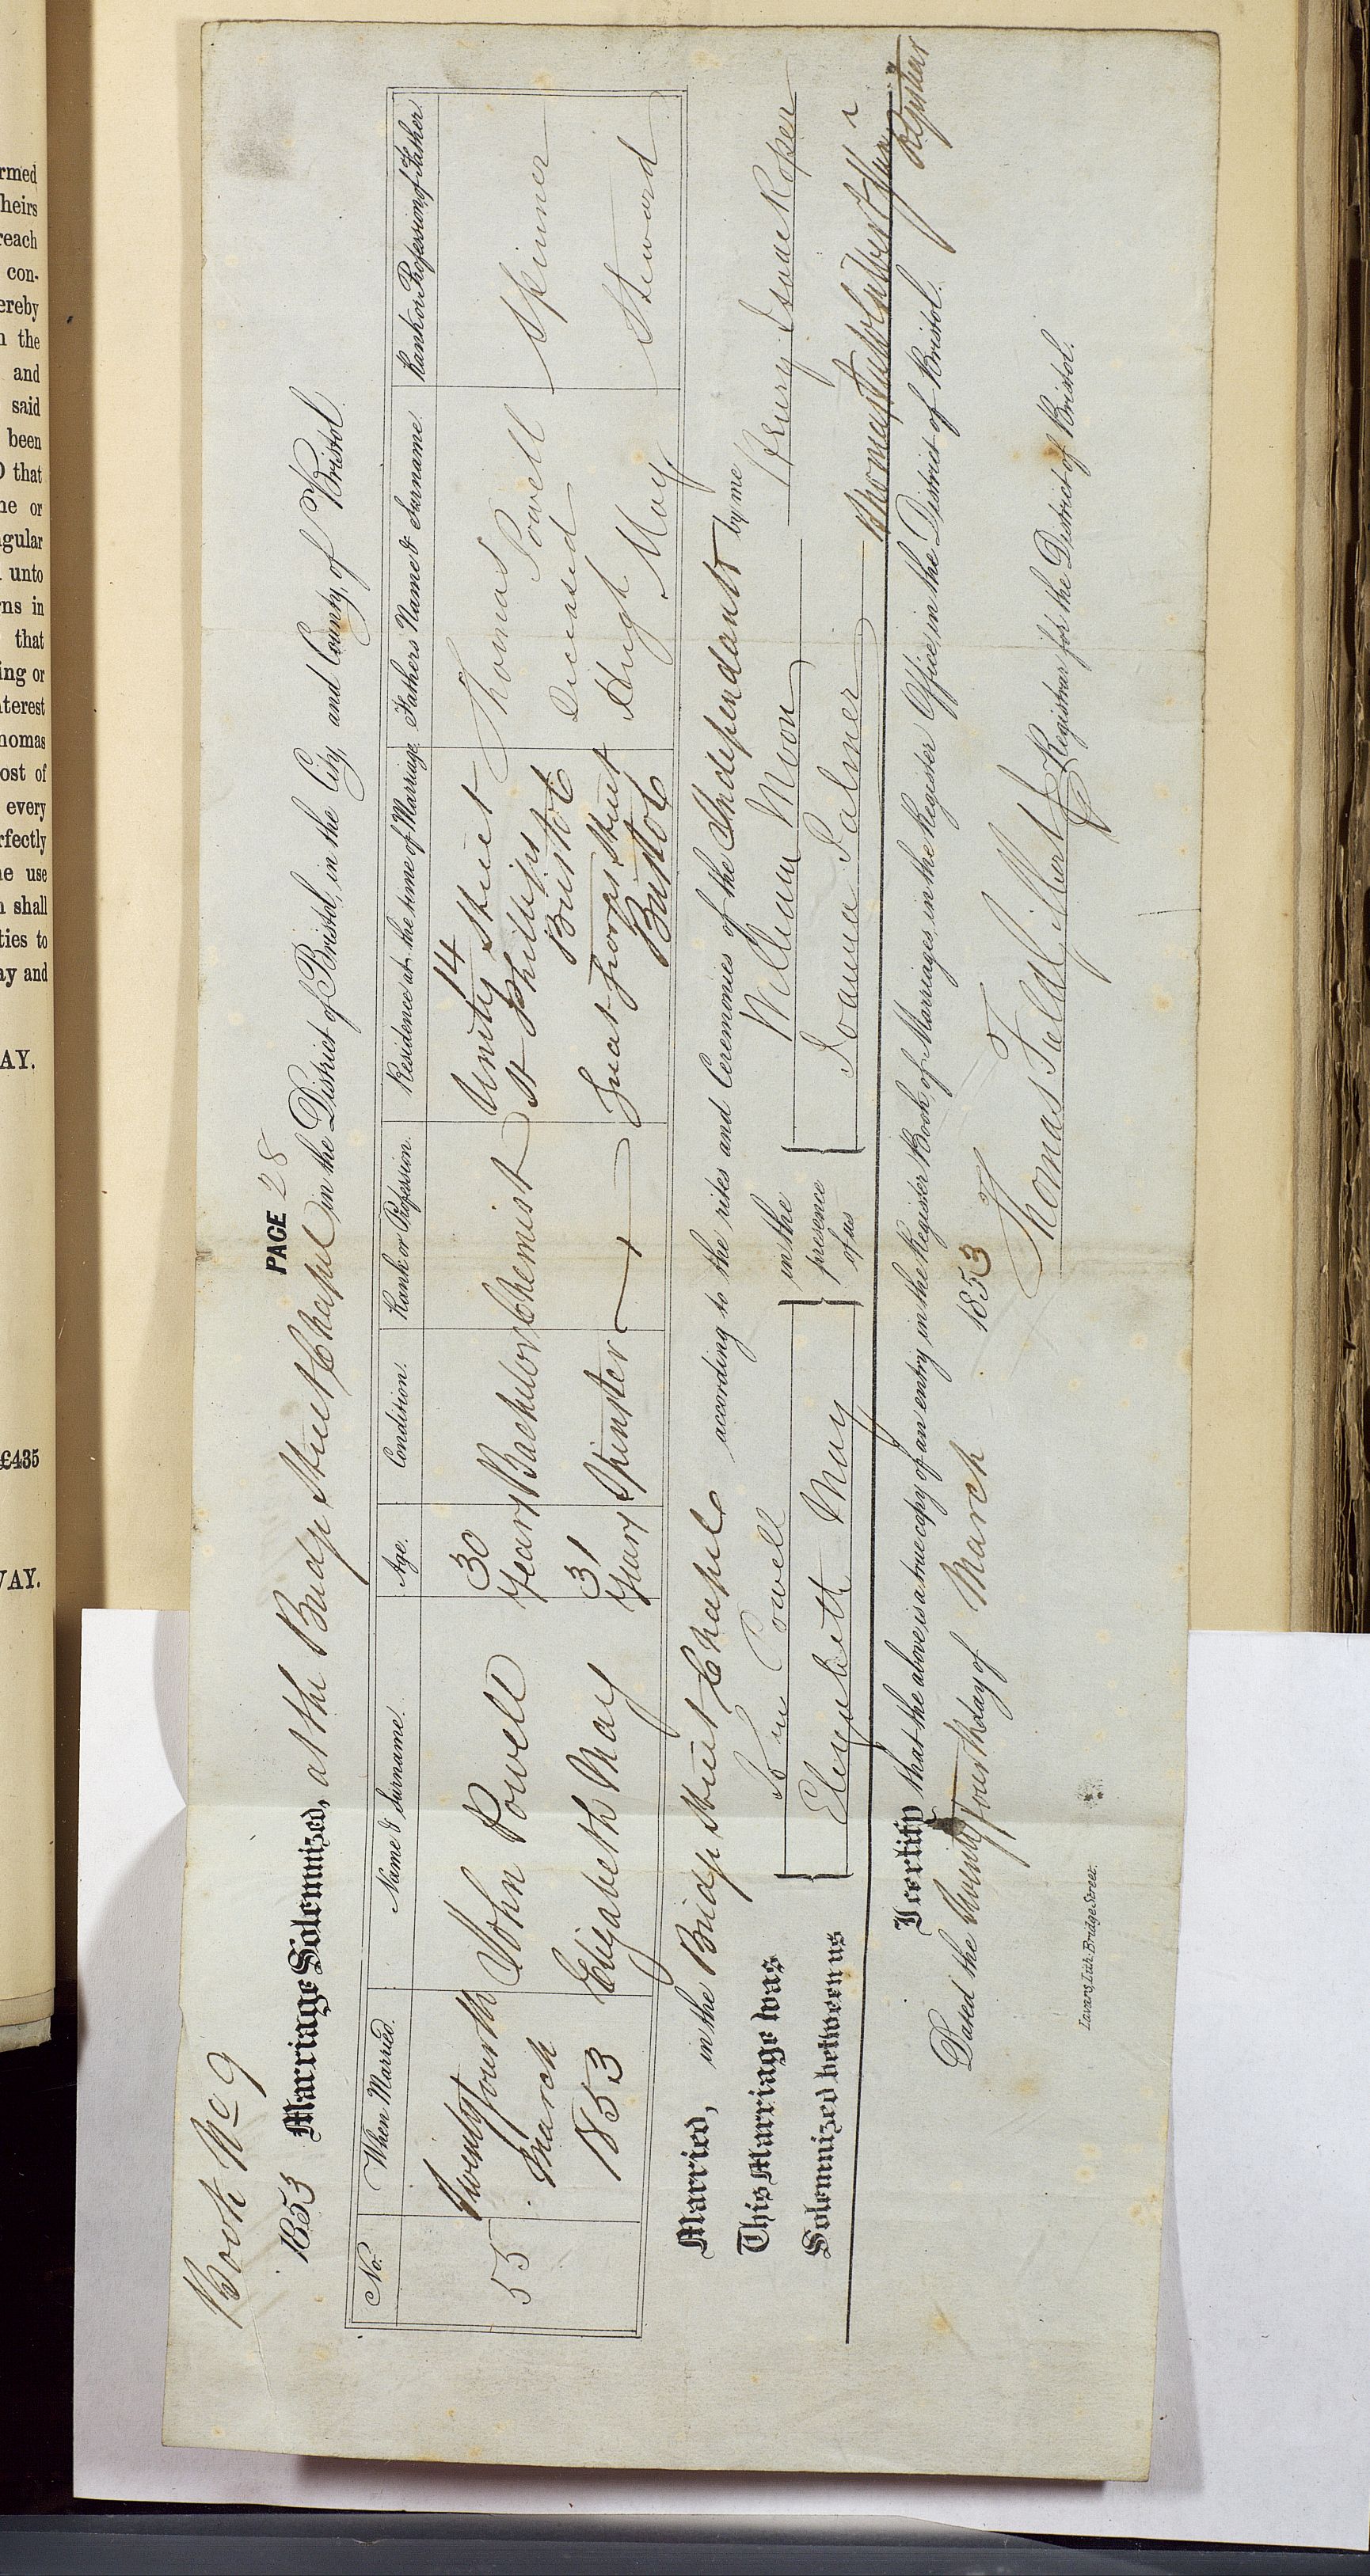 rmed
heirs
reach
con-
ereby
n the
and
said
been
O that
ne or
gular
unto
ns in
that
ing or
nterest
homas
ost of
every
rfectly
he use
n shall
ties to
ay and
AY.
£435
WAY.
Book No 9
PAGE 28
1853 Marriage Solemnized, at the Bridge Street Chapel in the District of Bristol, in the City, and County, of Bristol
No. When Married. Name & Surname. Age. Condition. Rank or Profession. Residence at the time of Marriage. Fathers Name & Surname. Rank or Profession of Father.
55 Twenty fourth March 1853 John Powell 30 Years Bachelor Chemist 14 Unity Street St Phillips Bristol Thomas Powell Deceased Spinner
Elizabeth May 31 Years Spinster Great George Street Bristol Hugh May Steward
Married, in the Bridge Street Chapel according to the rites and Ceremonies of the Independants by me
This Marriage was John Powell in the William Moon Henry Isaac Roper
Solemnized between us Elizabeth May presence of us Joanna Palmer Thomas Field Gilbert Registrar
I certify that the above is a true copy of an entry in the Register Book of Marriages, in the Register Office, in the District of Bristol.
Dated the twenty fourth day of March 1853
Thomas Field Gilbert Registrar for the District of Bristol.
Lavars Lith. Bridge Street.